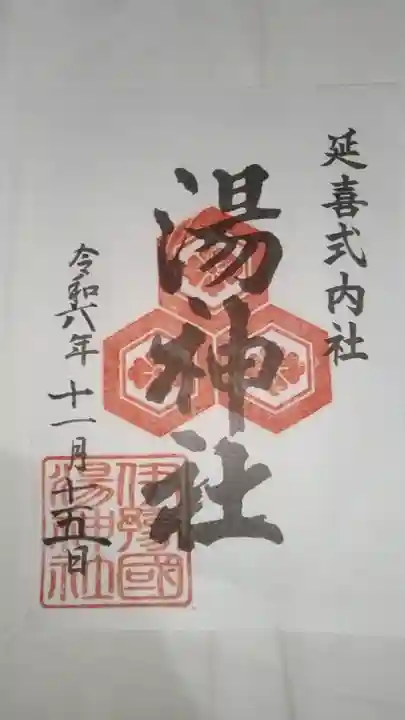 延喜式内社
湯神社
令和六年十一月十五日
伊豫國
湯神社